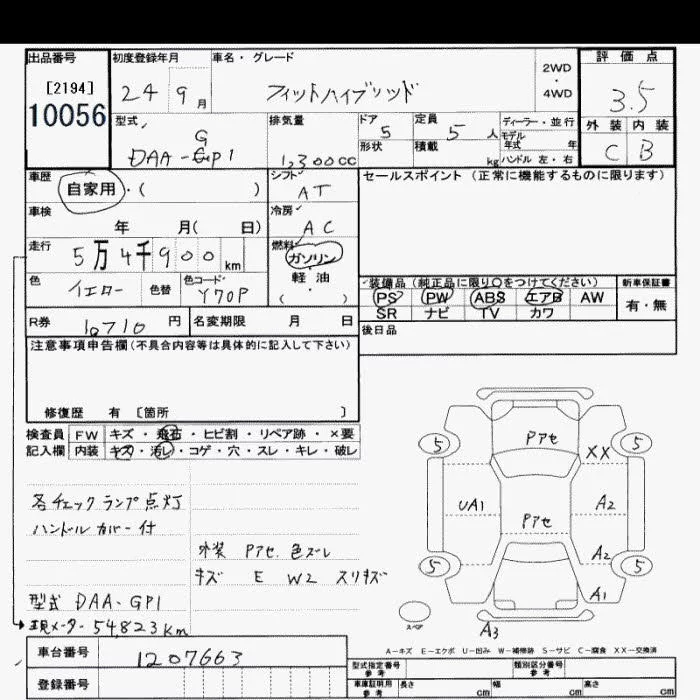 出品番号
[2194]
10056
初度登録年月
24 9 月
車名・グレード
フィットハイブリッド
2WD
・
4WD
評価点
3.5
外装 内装
C B
型式
G
DAA-GP1
排気量
1,300cc
ドア
5
定員
5 人
ディーラー・並行
モデル
年式 年
形状
積載
kg
ハンドル 左・右
車歴
自家用・( )
シフト
AT
セールスポイント(正常に機能するものに限ります)
車検
年 月( 日)
冷房
AC
走行
5万4千900km
燃料
ガソリン
軽・油
( )
色
イエロー
色替
色コード
Y70P
装備品(純正品に限り○をつけてください)
新車保証書
PS PW ABS エアB AW
SR ナビ TV カワ
有・無
R券
10710 円
名変期限 月 日
後日品
注意事項申告欄(不具合内容等は具体的に記入して下さい)
修復歴 有〔箇所 〕
検査員 FW キズ・飛石・ヒビ割・リペア跡・×要
記入欄 内装 キズ・汚レ・コゲ・穴・スレ・キレ・破レ
各チェックランプ点灯
ハンドルカバー付
外装 Pアセ 色ズレ
キズ E W2 スリキズ
型式 DAA-GP1
現メーター54823km
5 Pアセ 5
XX
UA1 A2
Pアセ
A2
5 5
A1
スペア
A3
A-キズ E-エクボ U-凹み W-補修跡 S-サビ C-腐食 XX-交換済
車台番号
1207663
登録番号
型式指定番号
参考
類別区分番号
参考
車庫証明用
参考
長さ cm 幅 cm 高さ cm